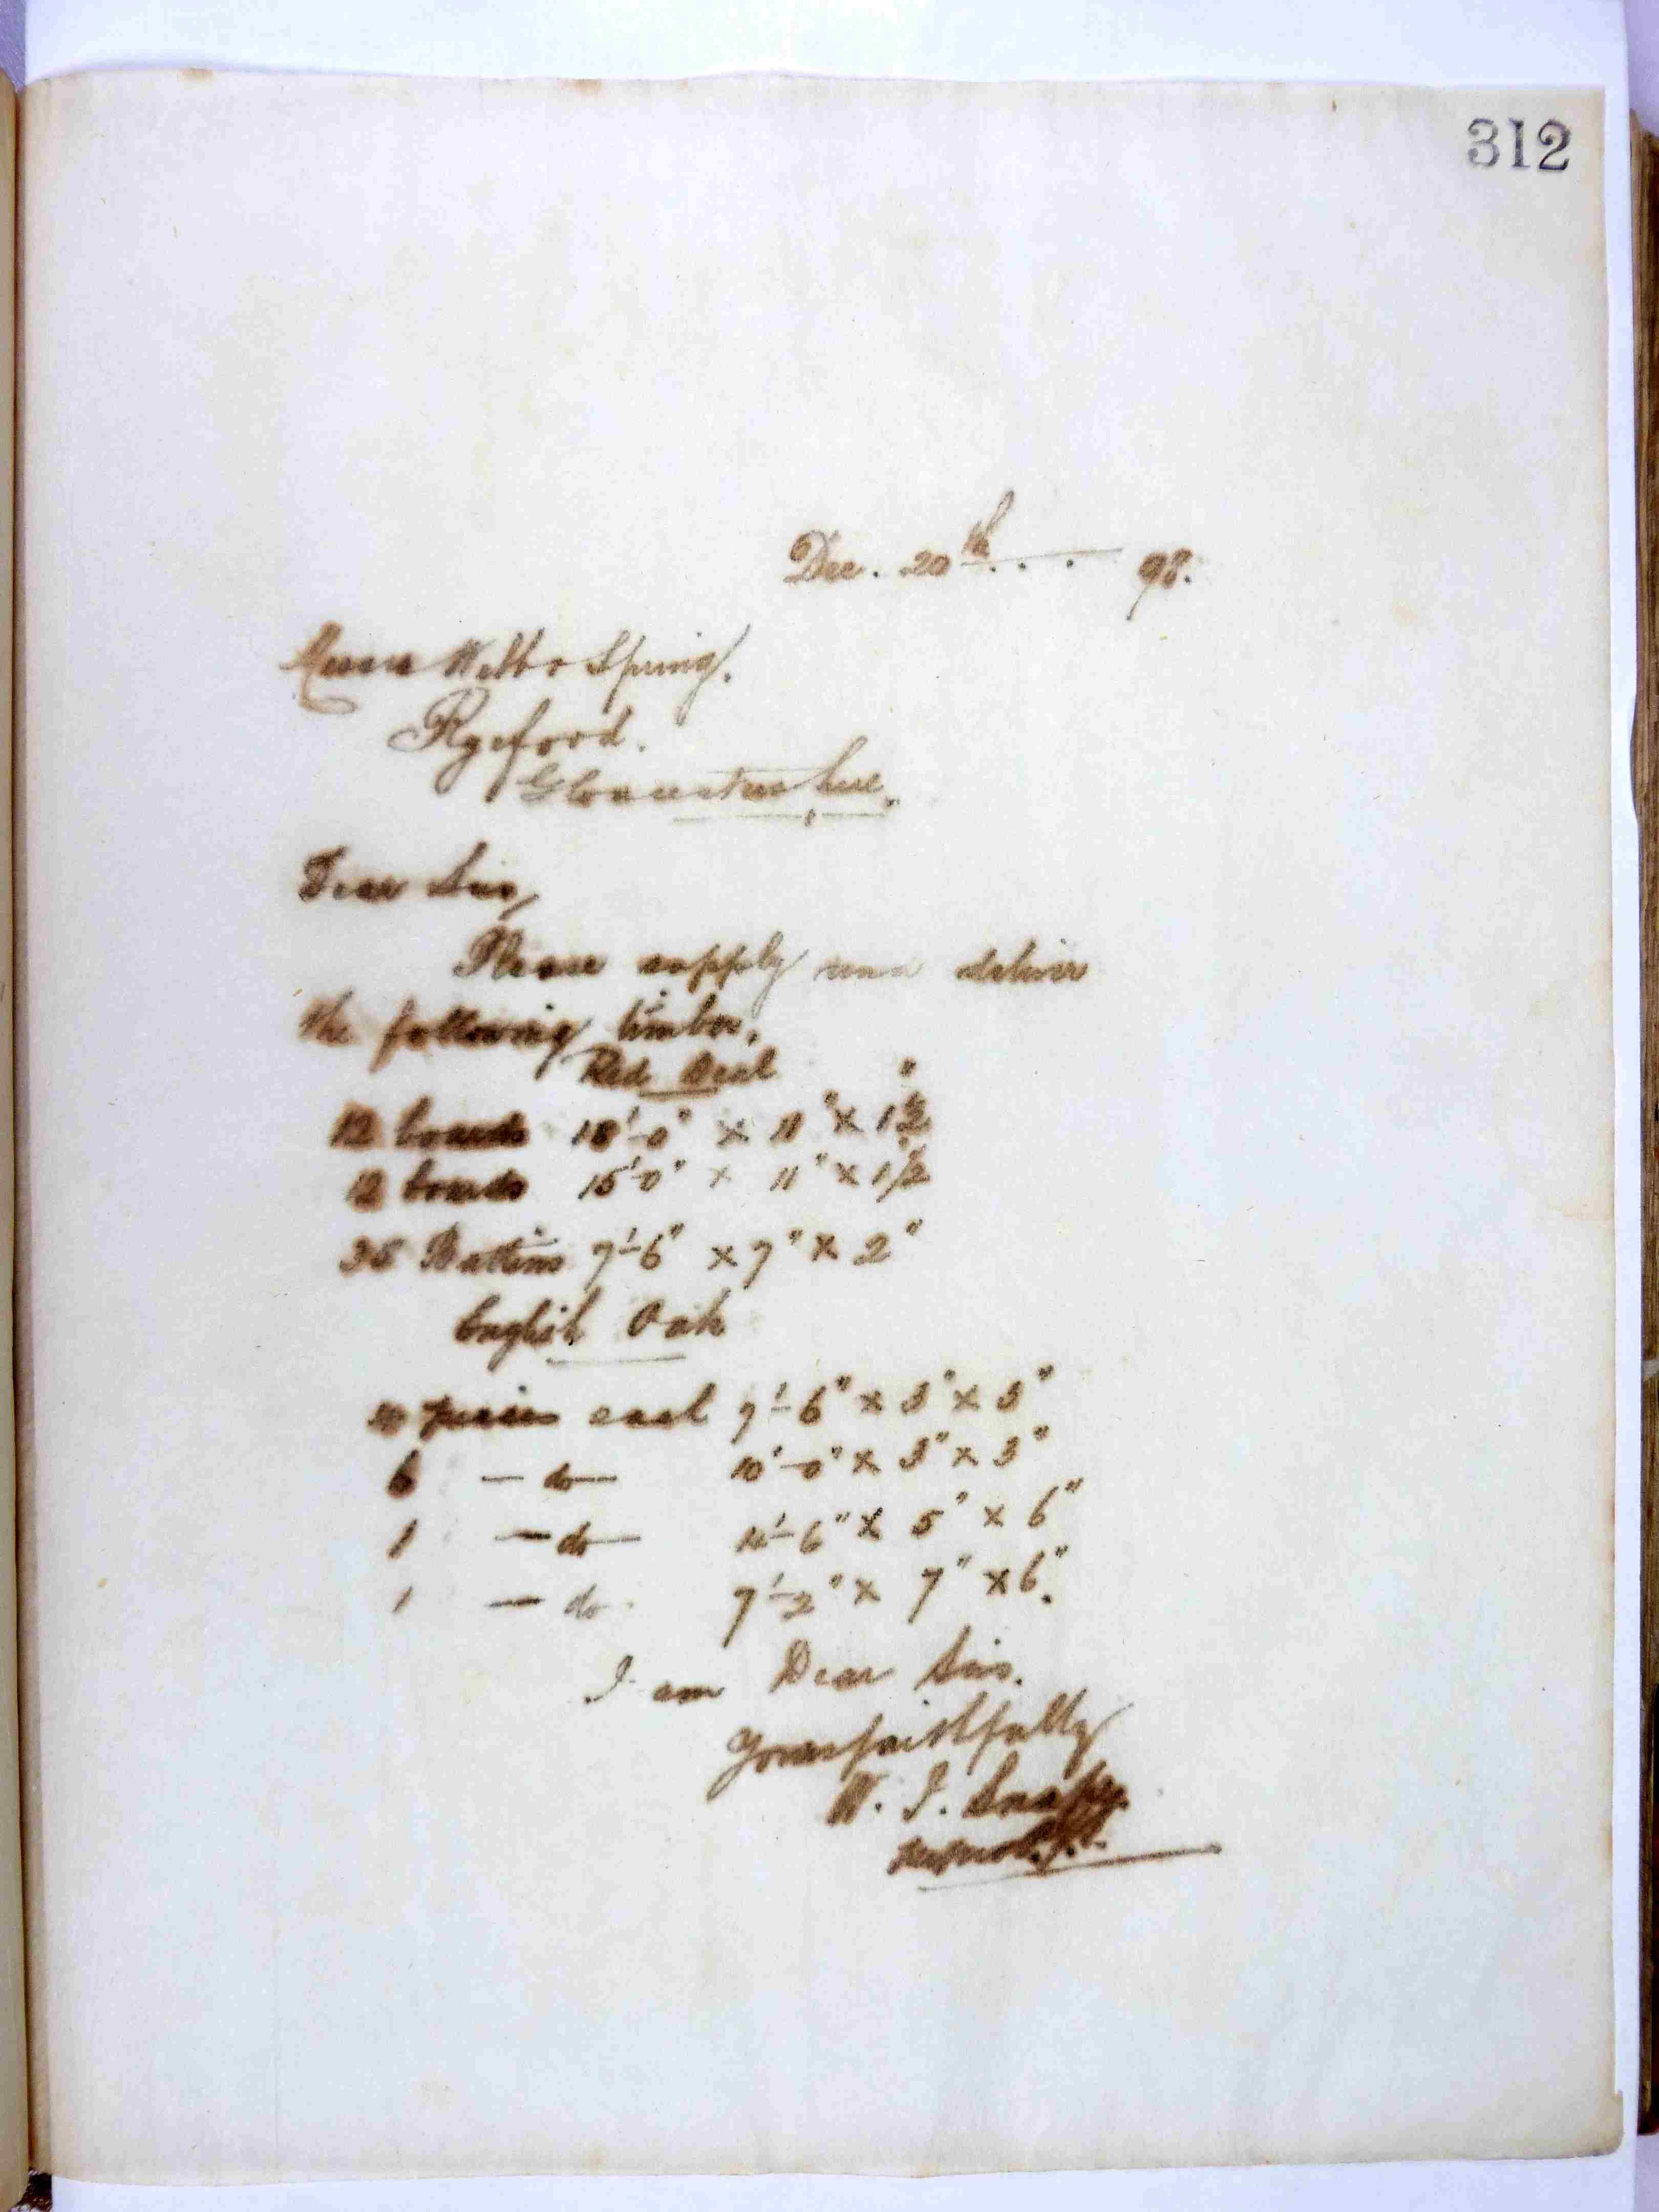 312
Dec. 20th . . . 98.
Messrs Webb & Spring.
Ryeford.
Gloucestershire.
Dear Sirs,
Please supply and deliver
the following timber.
Red Deal
12 boards 18'-0" x 11" x 1½"
12 boards 15'-0" x 11" x 1½"
35 Battins 7'-6" x 7" x 2"
English Oak
pieces each 9'-6" x 3" x 3"
6 — do — 10'-0" x 3" x 3"
1 — do — x 5" x 6"
1 — do - 7'-2" x 7" x 6".
I am Dear Sirs.
Yours faithfully
W. J. Snape.